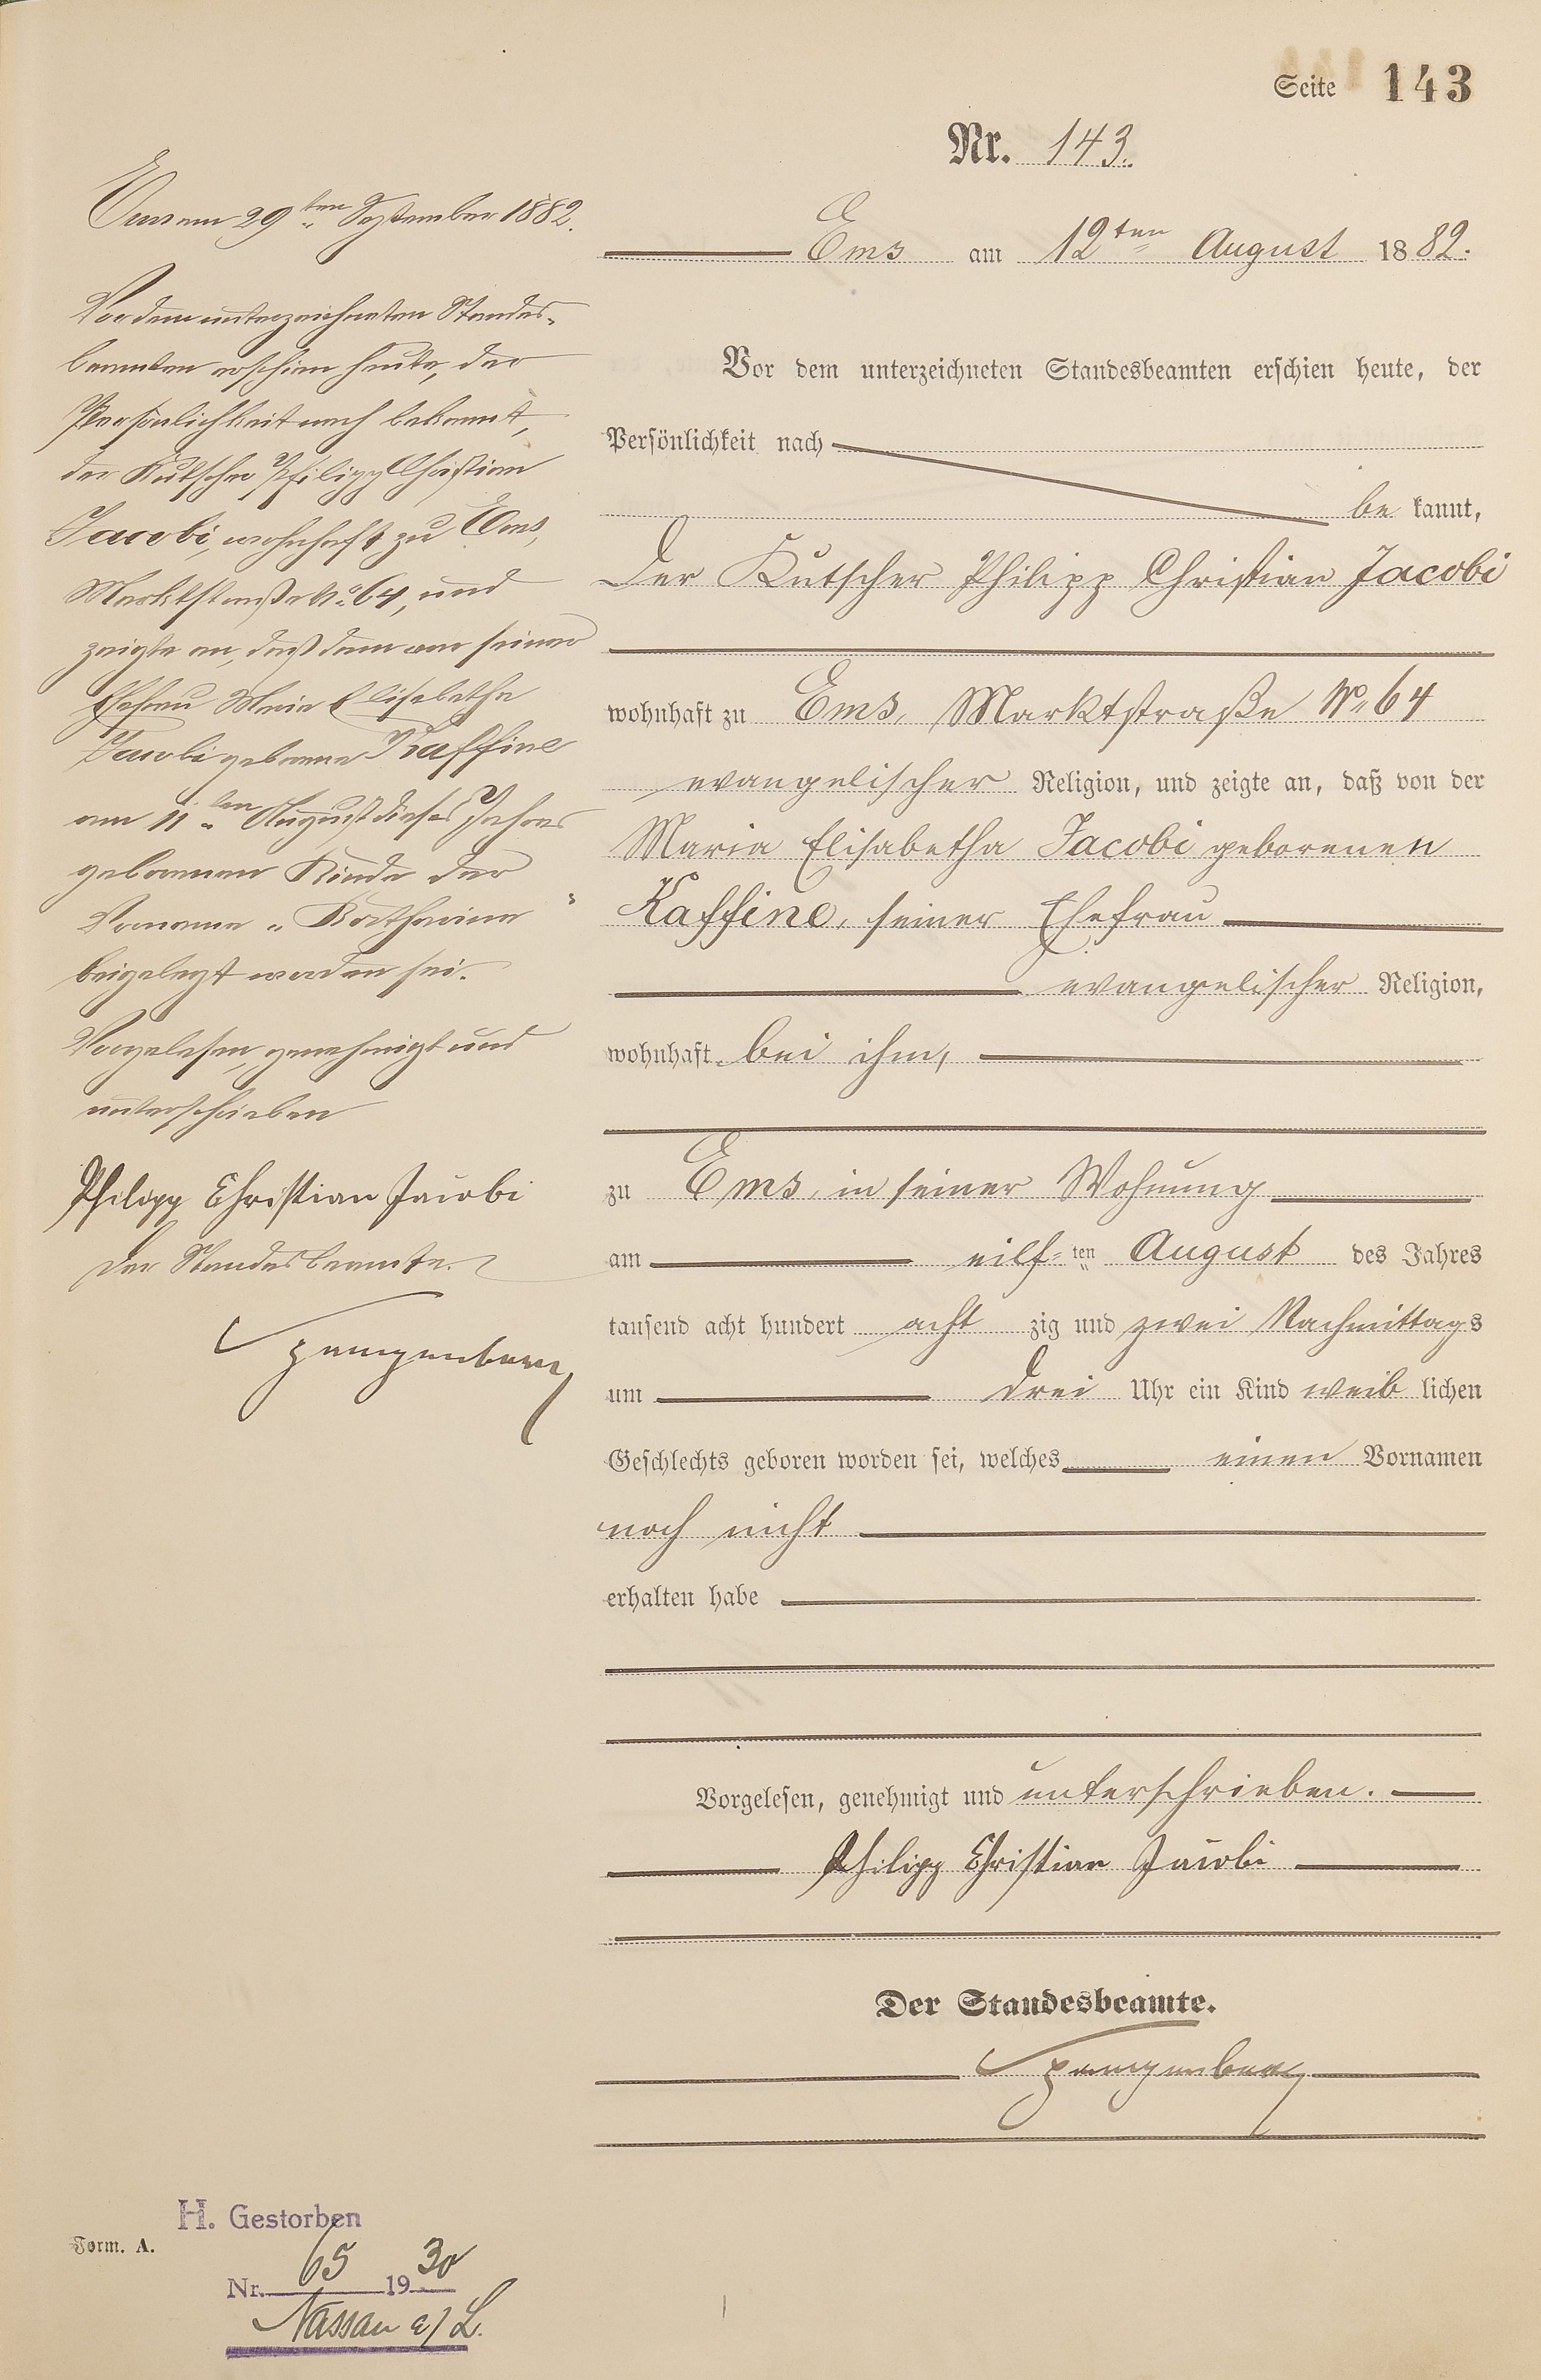 Seite 143
Nr. 143.
Ems am 12ten August 1882.
Vor dem unterzeichneten Standesbeamten erschien heute, der
Persönlichkeit nach
be kannt,
der Kutscher Philipp Christian Jacobi
wohnhaft zu Ems, Marktstraße No 64
evangelischer Religion, und zeigte an, daß von der
Maria Elisabetha Jacobi geborenen
Kaffine, seiner Ehefrau
evangelischer Religion,
wohnhaft bei ihm,
zu Ems, in seiner Wohnung
am eilf-ten August des Jahres
tausend acht hundert acht zig und zwei Nachmittags
um drei Uhr ein Kind weib lichen
Geschlechts geboren worden sei, welches einen Vornamen
noch nicht
erhalten habe
Vorgelesen, genehmigt und unterschrieben.
Philipp Christian Jacobi
Der Standesbeamte.
Spangenberg
Ems am 29ten September 1882.
Vor dem unterzeichneten Standes-
beamten erschien heute, der
Persönlichkeit nach bekannt,
der Kutscher Philipp Christian
Jacobi, wohnhaft zu Ems,
Marktstraße No 64, und
zeigte an, daß dem von seiner
Ehefrau Maria Elisabetha
Jacobi geborene Kaffine
am 11ten August dieses Jahres
geborenen Kinde der
Vorname „Katharina"
beigelegt worden sei.
Vorgelesen, genehmigt und
unterschrieben
Philipp Christian Jacobi
Der Standesbeamte.
Spangenberg
H. Gestorben
Form. A.
Nr. 65 1930
Nassau a/L.